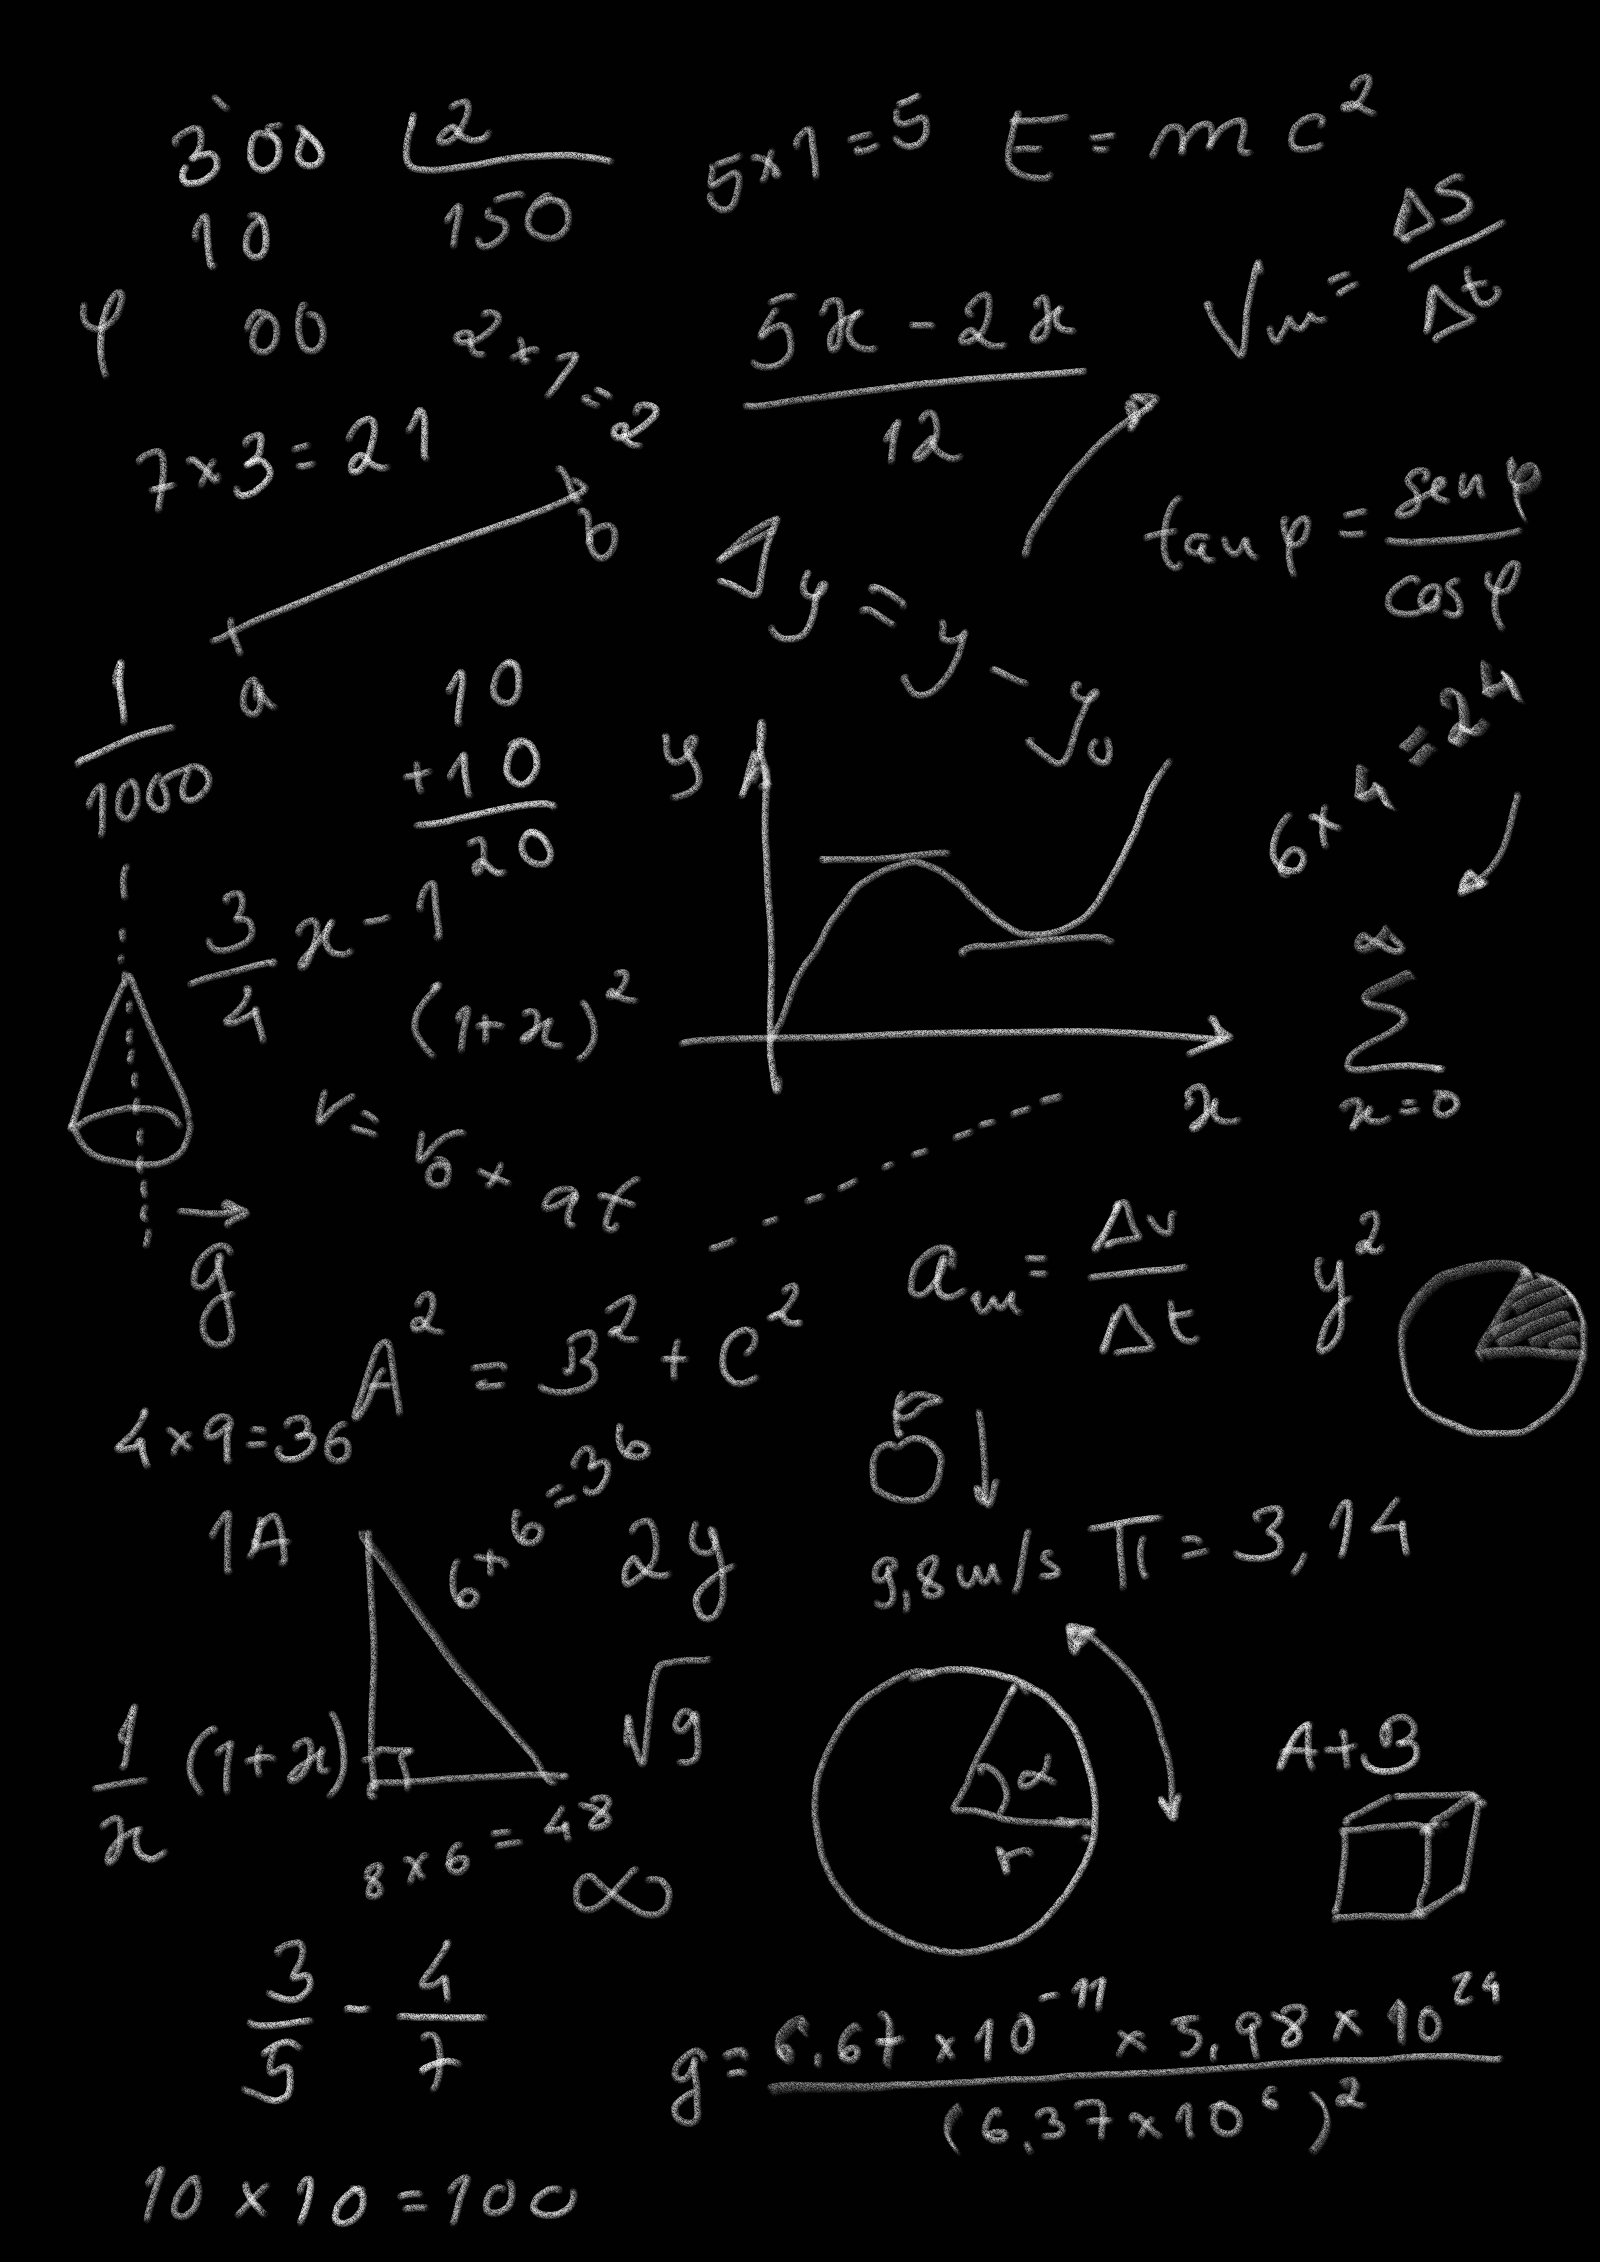 300 2
10 150
00
5×1=5
E = mc²
Vm = ΔS/Δt
φ
2×1=2
(5x - 2x)/12
7×3=21
a b
tan φ = sen φ/cos φ
Δy = y - y₀
1/1000
10
+10
20
6×4=24
y
x
3/4 x - 1
(1+x)²
∞
Σ
x=0
v = v₀ + at
g
am = Δv/Δt
y²
A² = B² + C²
4×9=36
F
1A
6×6=36
2y
9,8m/s
π = 3,14
1/x (1+x)
√9
α
r
A+B
8×6=48
∞
3/5 - 4/7
g = 6,67×10⁻¹¹ × 5,98×10²⁴/(6,37×10⁶)²
10×10=100